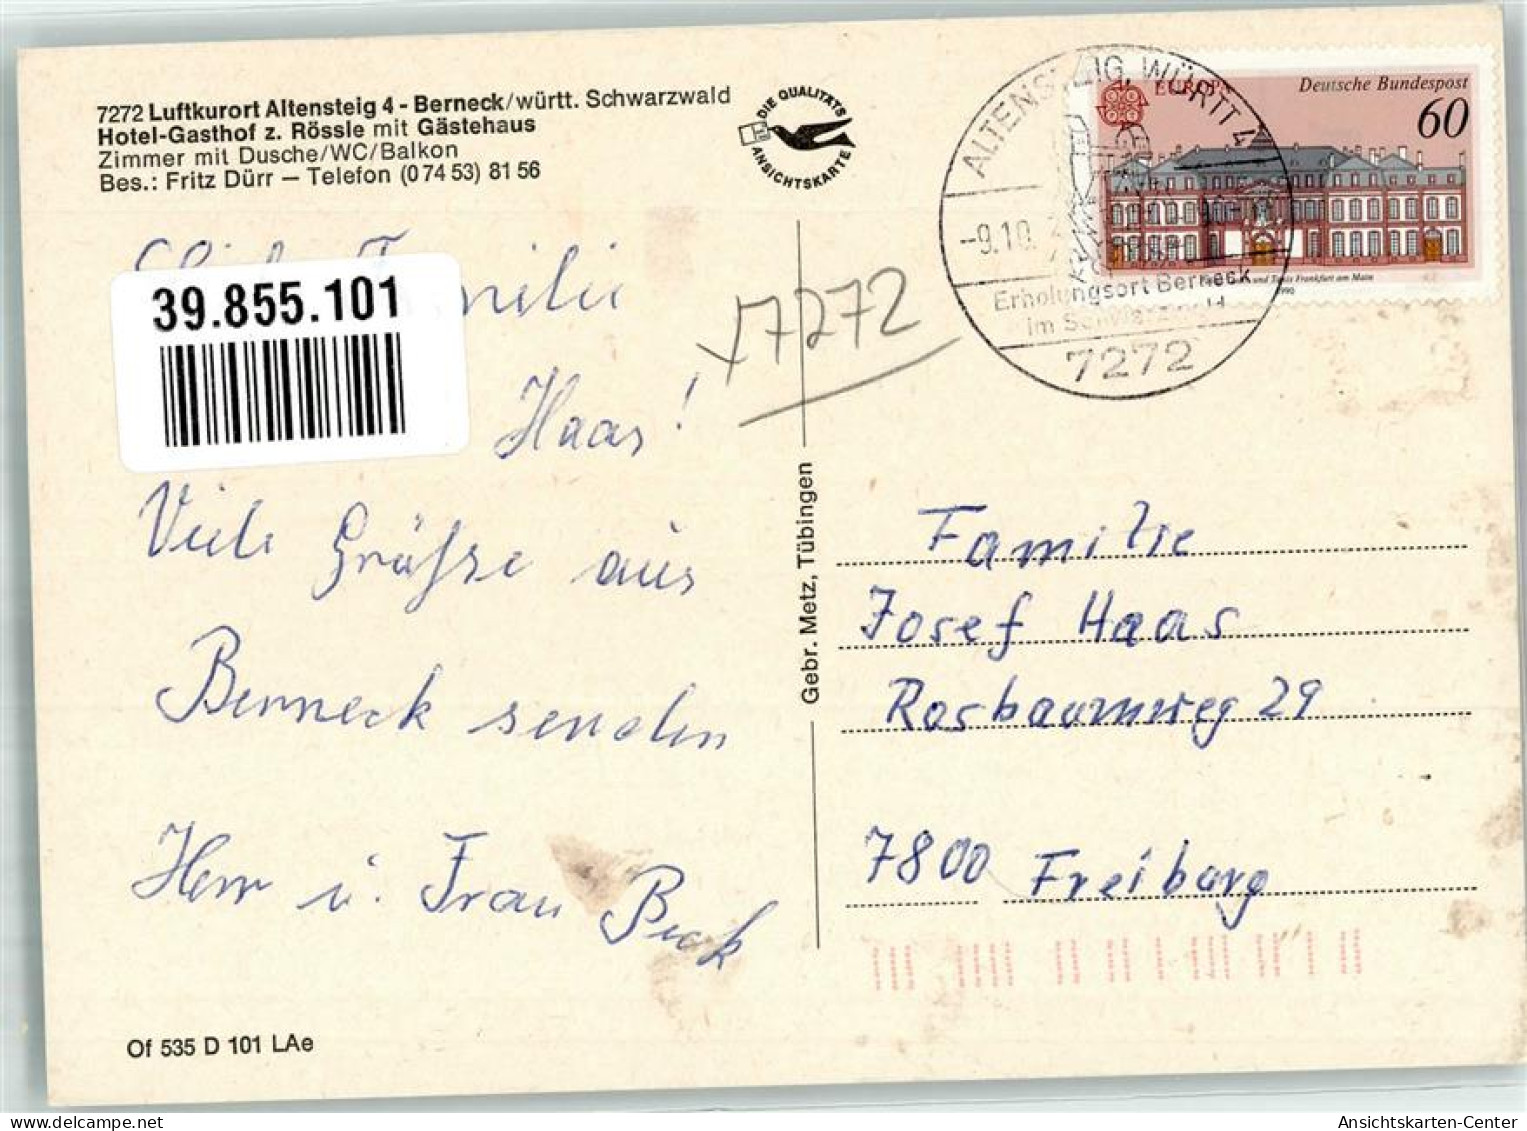 7272 Luftkurort Altensteig 4 - Berneck/württ. Schwarzwald
Hotel-Gasthof z. Rössle mit Gästehaus
Zimmer mit Dusche/WC/Balkon
Bes.: Fritz Dürr — Telefon (0 74 53) 81 56
DIE QUALITÄTS
ANSICHTSKARTE
ALTENSTEIG, WÜRTT 4
-9.10.
Erholungsort Berneck
im Schwarzwald
7272
EUROPA
Deutsche Bundespost
60
und Taxis Frankfurt am Main
1990
39.855.101
7272
Familie
Haas!
Viele Grüße aus
Berneck senden
Herr u. Frau Beck
Gebr. Metz, Tübingen
Familie
Josef Haas
Rosbaumweg 29
7800 Freiburg
Of 535 D 101 LAe
Ansichtskarten-Center